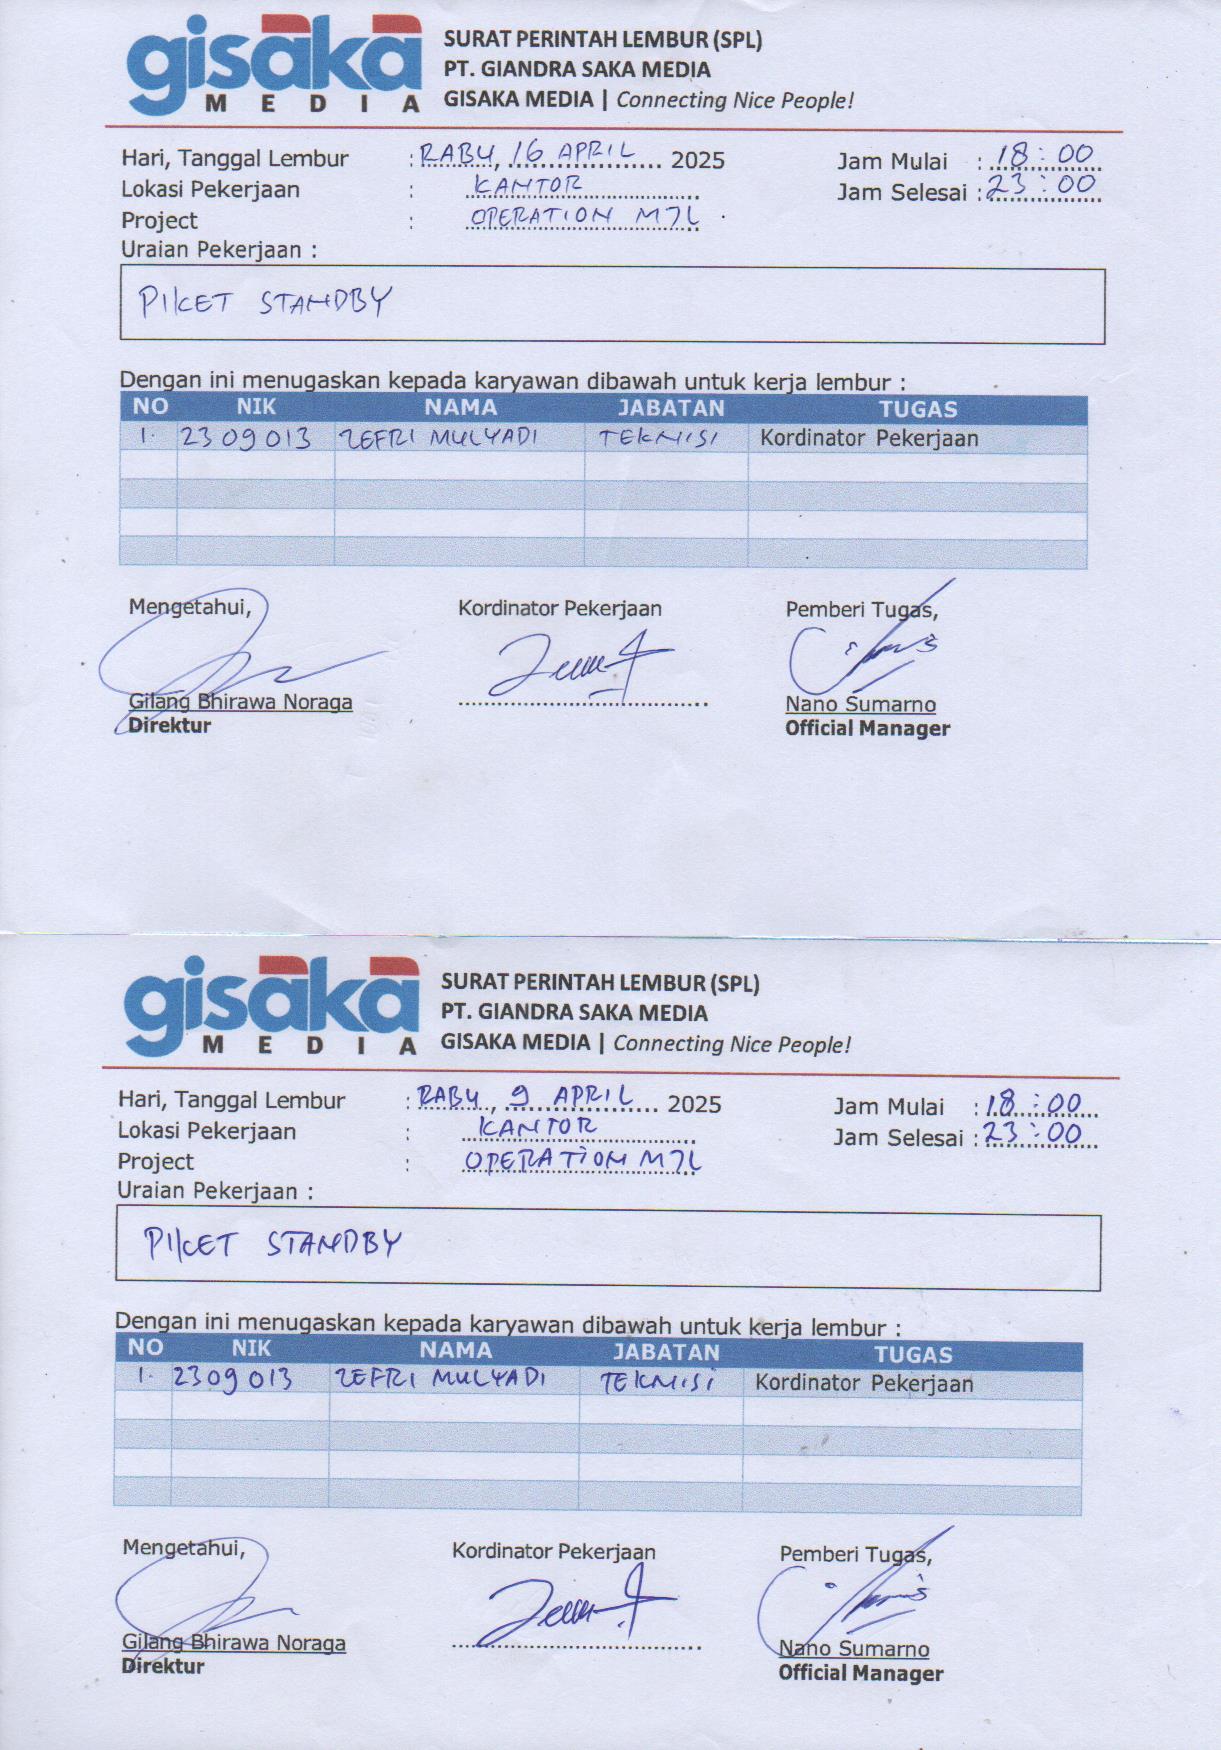 gisaka
MEDIA
SURAT PERINTAH LEMBUR (SPL)
PT. GIANDRA SAKA MEDIA
GISAKA MEDIA | Connecting Nice People!
Hari, Tanggal Lembur : RABU, 16 APRIL 2025 Jam Mulai : 18:00
Lokasi Pekerjaan : KANTOR Jam Selesai : 23:00
Project : OPERATION MJL
Uraian Pekerjaan :
PIKET STANDBY
Dengan ini menugaskan kepada karyawan dibawah untuk kerja lembur :
NO NIK NAMA JABATAN TUGAS
1. 2309013 ZEFRI MULYADI TEKNISI Kordinator Pekerjaan
Mengetahui, Kordinator Pekerjaan Pemberi Tugas,
Gilang Bhirawa Noraga Nano Sumarno
Direktur Official Manager
gisaka
MEDIA
SURAT PERINTAH LEMBUR (SPL)
PT. GIANDRA SAKA MEDIA
GISAKA MEDIA | Connecting Nice People!
Hari, Tanggal Lembur : RABU, 9 APRIL 2025 Jam Mulai : 18:00
Lokasi Pekerjaan : KANTOR Jam Selesai : 23:00
Project : OPERATION MJL
Uraian Pekerjaan :
PIKET STANDBY
Dengan ini menugaskan kepada karyawan dibawah untuk kerja lembur :
NO NIK NAMA JABATAN TUGAS
1. 2309013 ZEFRI MULYADI TEKNISI Kordinator Pekerjaan
Mengetahui, Kordinator Pekerjaan Pemberi Tugas,
Gilang Bhirawa Noraga Nano Sumarno
Direktur Official Manager